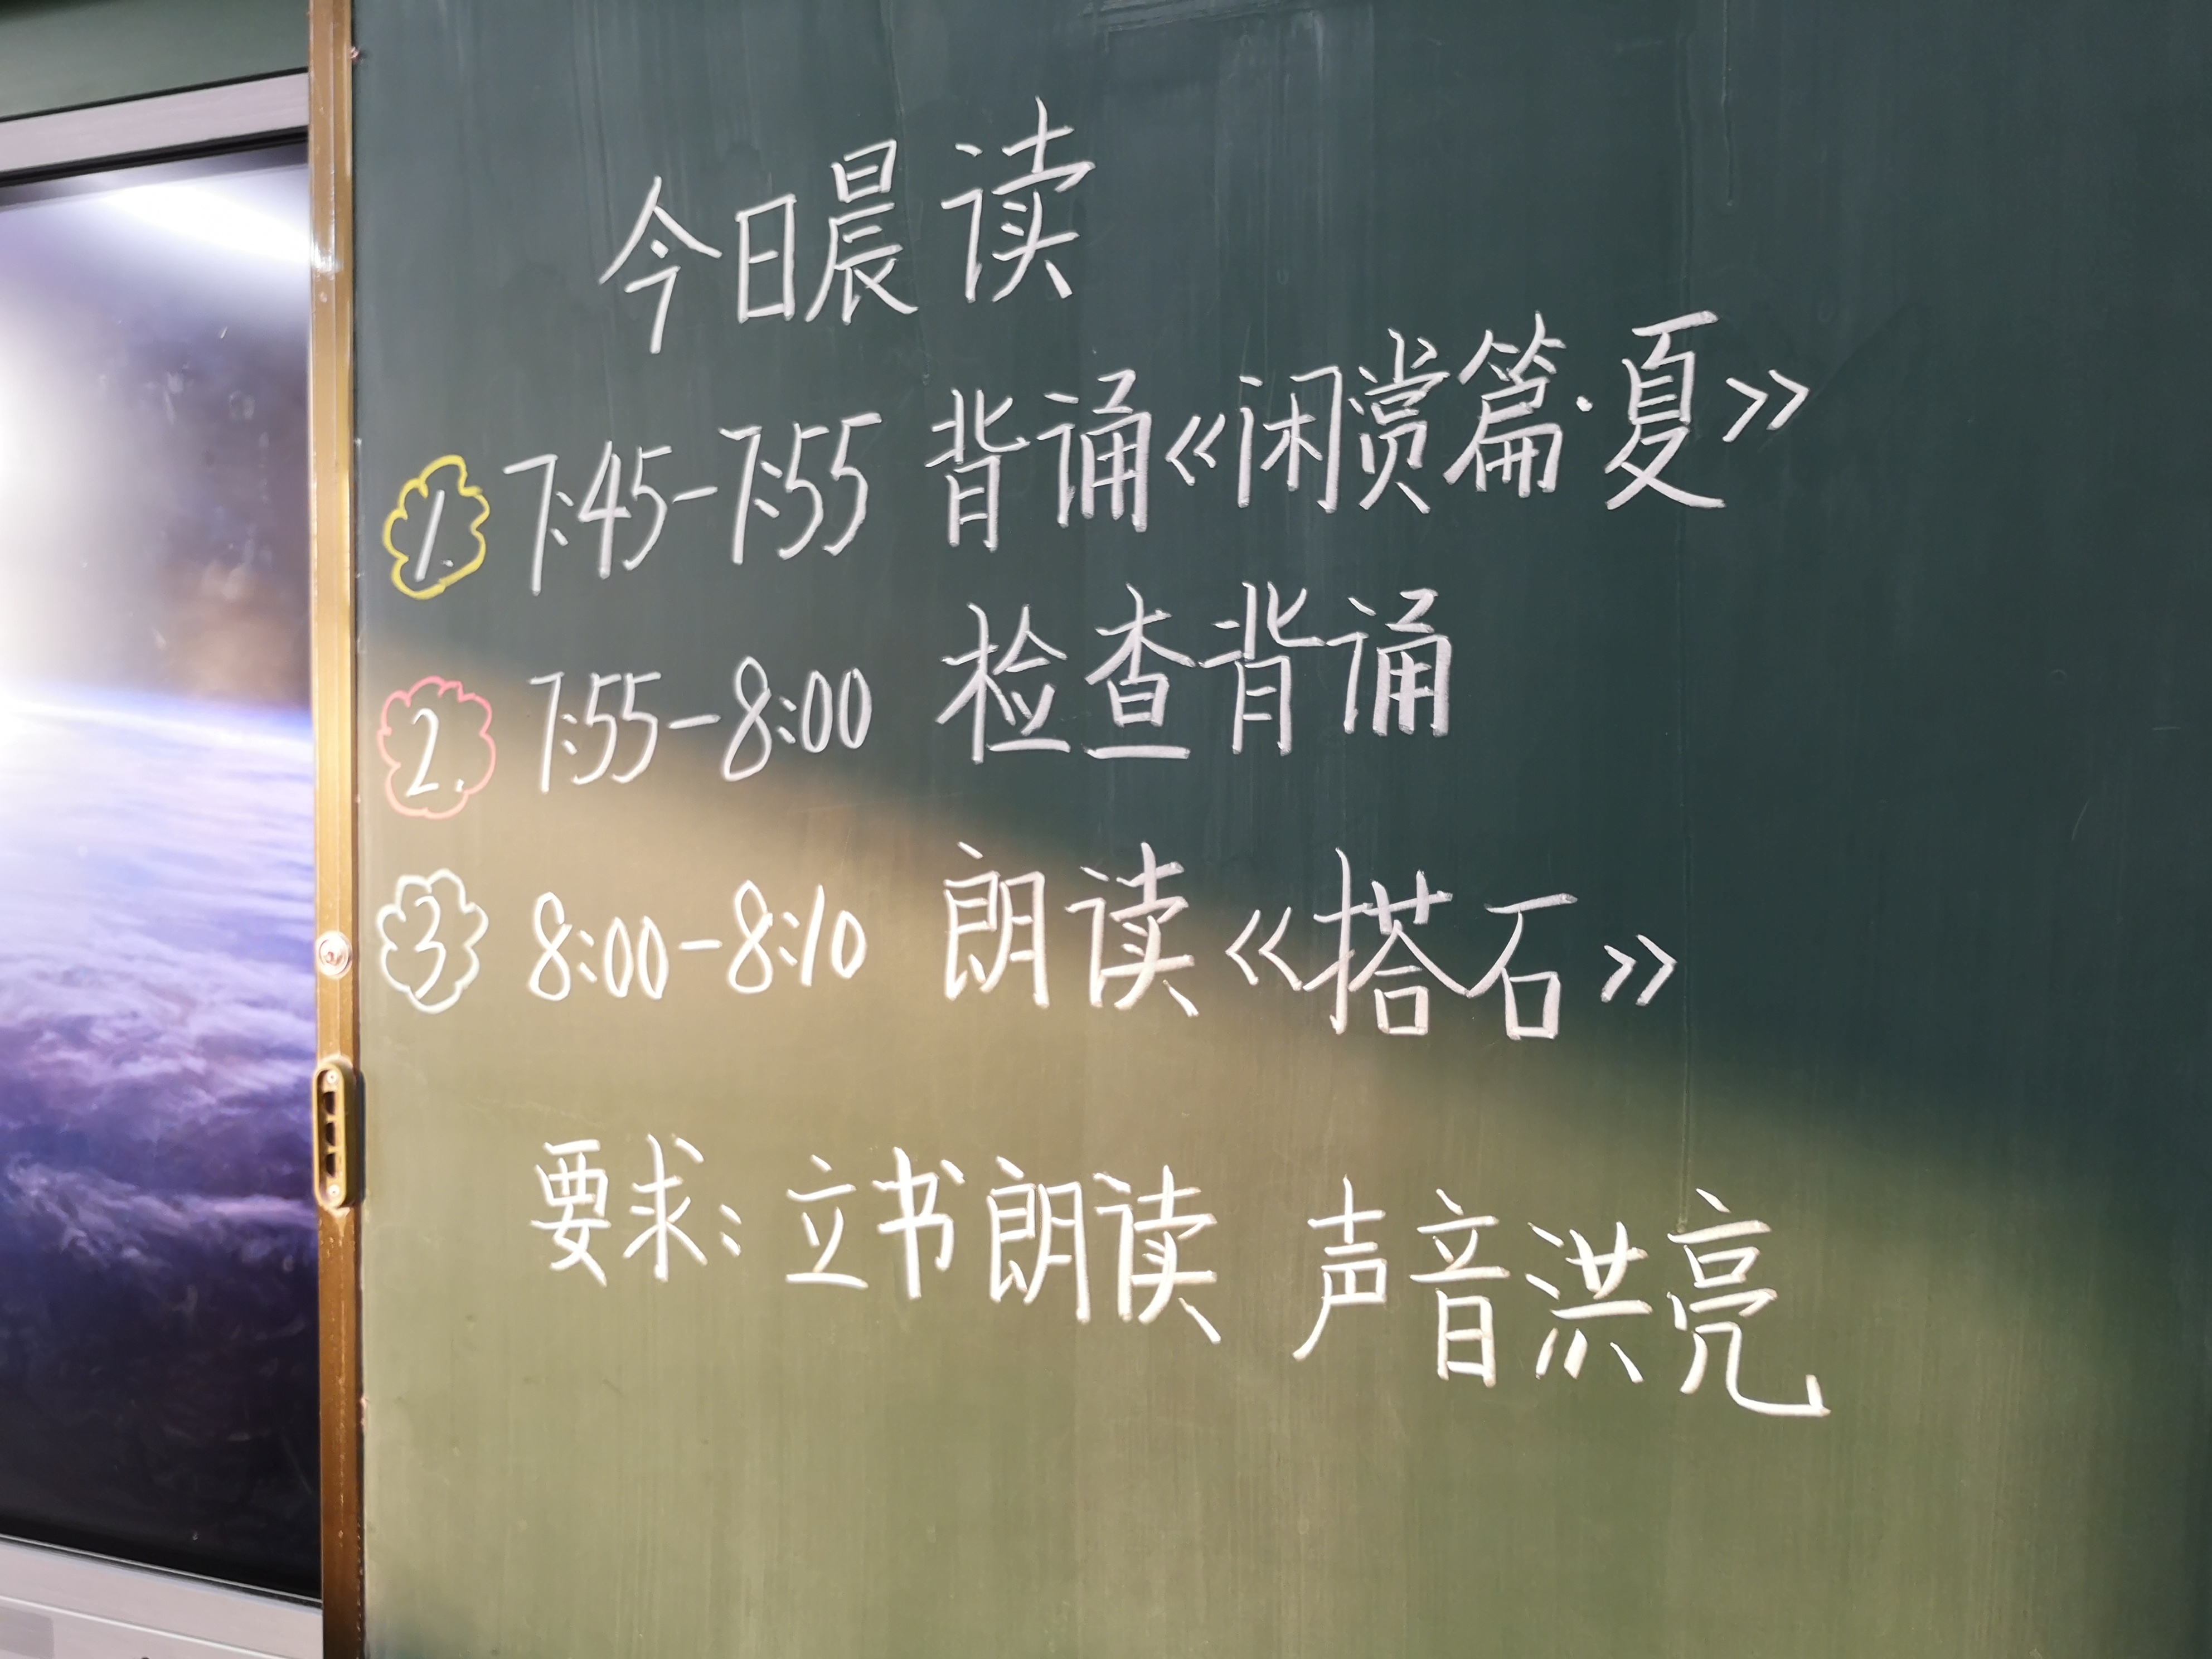 今日晨读
1. 7:45-7:55 背诵《闲赏篇·夏》
2. 7:55-8:00 检查背诵
3 8:00-8:10 朗读《搭石》
要求：立书朗读 声音洪亮